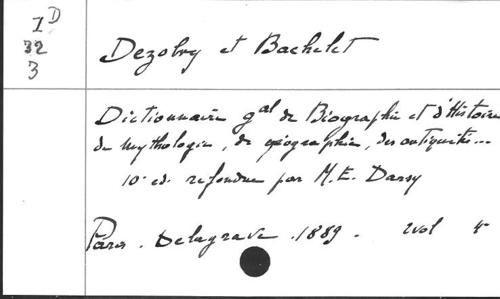 I D
32
3
Dezobry et Bachelet
Dictionnaire gal de Biographie et d'Histoire
de mythologie, de géographie, des antiquités...
10e ed. refondue par M. E. Darsy
Paris. Delagrave. 1889. 2 vol 4°